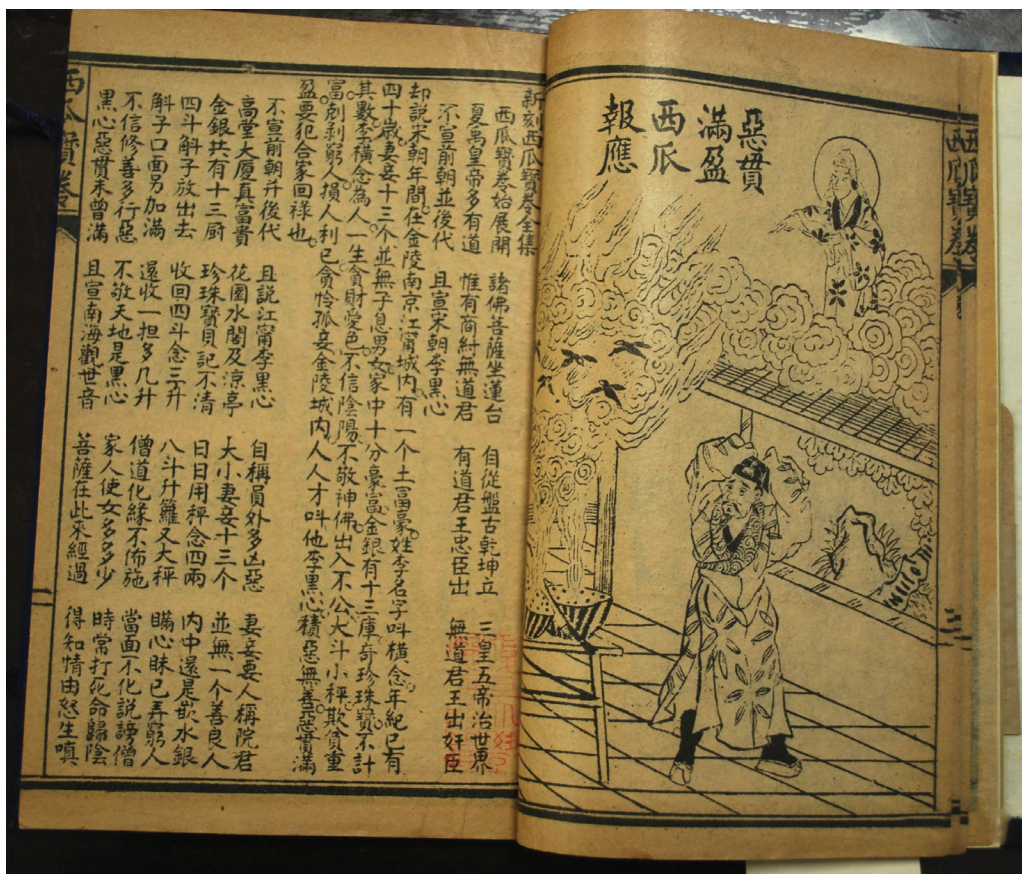 惡貫
滿盈
西瓜
報應
西瓜寶卷
新刻西瓜寶卷全集
西瓜寶卷始展開 諸佛菩薩坐蓮台 自從盤古乾坤立 三皇五帝治世界
夏禹皇帝多有道 惟有商紂無道君 有道君王忠臣出 無道君王出奸臣
不宣前朝並後代 且宣宋朝李黑心
却說宋朝年間在金陵南京江甯城內有一个土富豪。姓李名字呌横念。年紀已有
四十歲。妻妾十三个。並無子息男女。家中十分豪富。金銀有十三庫。奇珍珠寶不計
其數。李横念為人一生貪財愛色。不信陰陽。不敬神佛。出入不公。大斗小秤。欺貧重
富。剋剥窮人。損人利己。貪怜孤妾。金陵城內人人才呌他李黑心。積惡無善。惡貫滿
盈。要犯合家回禄也。
不宣前朝并後代 且說江甯李黑心 自稱員外多凶惡 妻妾要人稱院君
高堂大厦真富貴 花園水閣及涼亭 大小妻妾十三个 並無一个善良人
金銀共有十三厨 珍珠寶貝記不清 日日用秤念四兩 內中還是嵌水銀
四斗斛子放出去 收回四斗念三升 八斗升籮又大秤 瞞心昧已弄窮人
斛子口面另加滿 還收一担多几升 僧道化緣不佈施 當面不化説謗僧
不信修善多行惡 不敬天地是黑心 家人使女多多少 時常打死命歸陰
黑心惡貫未曾滿 且宣南海觀世音 菩薩在此來經過 得知情由怒生嗔
西瓜寶卷
二